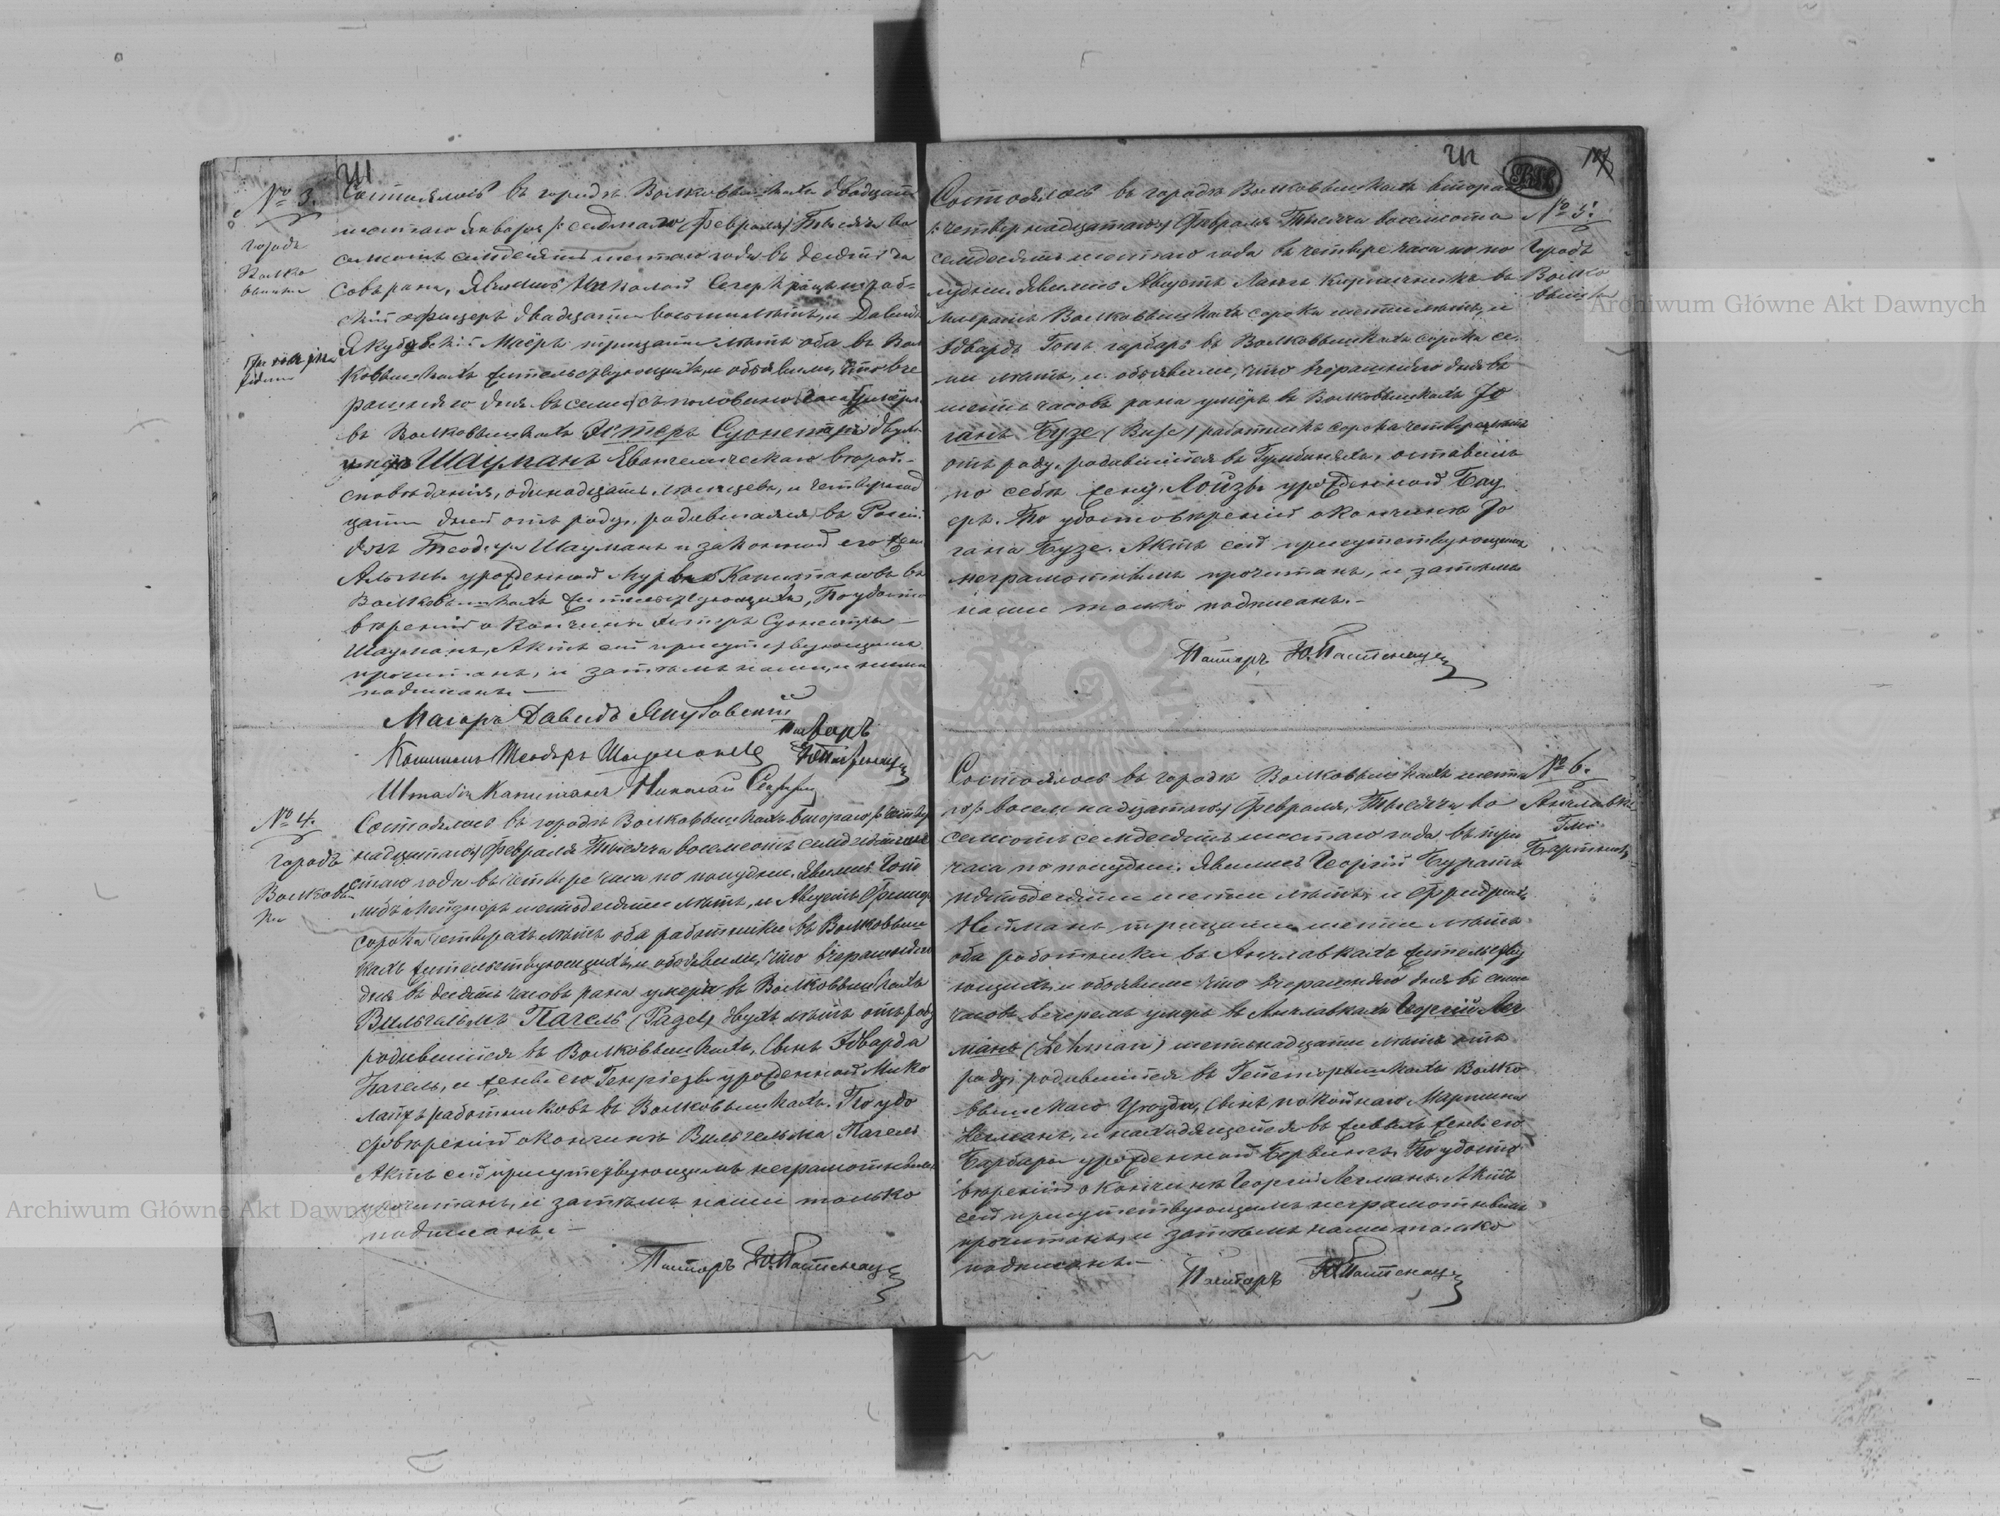 211
№ 3.
городъ
Волко
вышки
Состоялось въ городѣ Волковышкахъ двадцать
шестаго Января /: седмаго / Февраля / Тысяча во
семьсотъ семдесятъ шестаго года въ десять ча
совъ рана, Явились Николай
офицеръ двадцати восьми лѣтъ, и Давидъ
Якубовскій Маіоръ тридцати лѣтъ оба въ Вол
ковышкахъ жительствующихъ, и объявили, что вче
рашняго дня въ семь съ половиною часа
въ Волковышкахъ Эстеръ
Шауманъ Евангелическаго вѣрои-
сповѣданія, одинадцать мѣсяцевъ, и четырнад
цати дней отъ роду, родившаяся въ
Теодора Шауманъ и законной его жены
урожденной въ
Волковышкахъ жительствующихъ, По удосто
вѣреній о кончинѣ Эстеръ
Шауманъ, Актъ сей присутствующимъ
прочитанъ, и затѣмъ нами, и ними
подписанъ. —
Маіоръ Давидъ Якубовскій
Пасторъ
Капитанъ Теодоръ Шауманъ
Штабсъ Капитанъ Николай
№ 4.
городъ
Волковыш
ки
Состоялось въ городѣ Волковышкахъ втораго /: четыр
надцатаго / Февраля Тысяча восемсотъ семдесятъ ше
стаго года въ четыре часа по полудни. Явились Гот
либъ шестьдесяти лѣтъ, и Августъ
сорока четырехъ лѣтъ оба работники въ Волковыш
кахъ жительствующихъ, и объявили, что вчерашняго
дня въ десять часовъ рана умеръ въ Волковышкахъ
Вильгельмъ Пагель (Pagel) двухъ лѣтъ отъ роду
родившійся въ Волковышкахъ, сынъ Эдварда
Пагель, и жены его Генріэты урожденной Мико
лайтъ работниковъ въ Волковышкахъ. По удо
стовѣреній о кончинѣ Вильгельма Пагель
Актъ сей присутствующимъ неграмотнымъ
прочитанъ, и затѣмъ нами только
подписанъ. —
Пасторъ
212
№ 5.
городъ
Волко
вышки
Состоялось въ городѣ Волковышкахъ втораго
/: четырнадцатаго / Февраля Тысяча восемсотъ
семдесятъ шестаго года въ четыре часа по по
лудни. Явились Августъ Лангъ
Волковышкахъ сорока шести лѣтъ, и
Эдвардъ Гопъ гарбаръ въ Волковышкахъ сорока се
ми лѣтъ, и объявили, что вчерашняго дня въ
шесть часовъ рана умеръ въ Волковышкахъ Іо
ганъ Бузе (Buse) работникъ сорока четырехъ лѣтъ
отъ роду, родившійся въ Гумбиняхъ, оставивъ
по себѣ жену Лойзу урожденной Бау
ръ. По удостовѣреній о кончинѣ Іо
гана Бузе. Актъ сей присутствующимъ
неграмотнымъ прочитанъ, и затѣмъ
нами только подписанъ. —
Пасторъ
№ 6.
Состоялось въ городѣ Волковышкахъ шеста
го /: восемнадцатаго / Февраля, Тысяча во
семсотъ семдесятъ шестаго года въ три
часа по полудни. Явились Георгій Буратъ
пятьдесяти шести лѣтъ, и Фридрихъ
Нейманъ тридцати шести лѣтъ
оба работники въ Анчлавкахъ жительству
ющихъ, и объявили что вчерашняго дня въ семь
часовъ вечеромъ умеръ въ Анчлавкахъ Георгій Лег
манъ (Lehman) шестьнадцати лѣтъ отъ
роду, родившійся въ Волко
вышскаго Уѣзда, сынъ покойнаго Мартина
Легманъ, и находящейся въ живыхъ жены его
Барбары урожденной По удосто
вѣреній о кончинѣ Георгія Легманъ. Актъ
сей присутствующимъ неграмотнымъ
прочитанъ, и затѣмъ нами только
подписанъ. —
Пасторъ
Archiwum Główne Akt Dawnych
Archiwum Główne Akt Dawnych